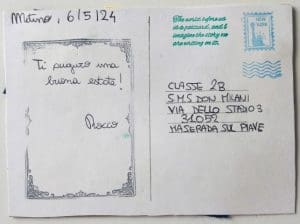 Milano, 6/5/24
Ti auguro una
buona estate!
Rocco
The world before us
is a postcard, and I
imagine the story we
are writing on it.
NEW
YORK
CLASSE 2B
S.M.S DON MILANI
VIA DELLO STADIO 3
31052
MASERADA SUL PIAVE